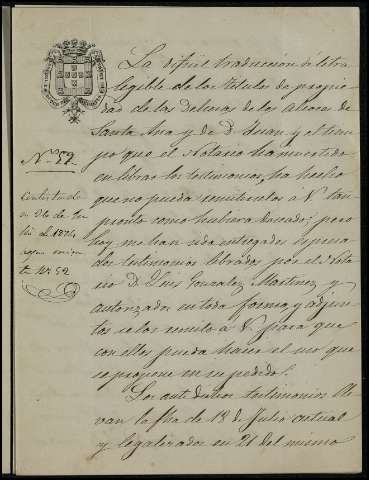 La difícil traducción á letra
legible de los títulos de propie
dad de las dehesas de los alcores de
Santa Ana y de D. Juan y el tiem
po que el Notario ha invertido
en librar los testimonios, ha hecho
que no pueda remitirselos á V tan
pronto como hubiera deseado; pero
hoy me han sido entregados
dos testimonios librados por el Nota
rio D. Luis Gonzalez Martinez y
autorizados en toda forma, y adjun
tos se los remito á V. para que
con ellos pueda hacer el uso que
se propone en su pedido.
Los antedichos testimonios lle
van la fha de 18 de Julio actual
y legalizados en 21 del mismo
Nº 52
Contestado
en 26 de
de 1874
segun
Nº 52